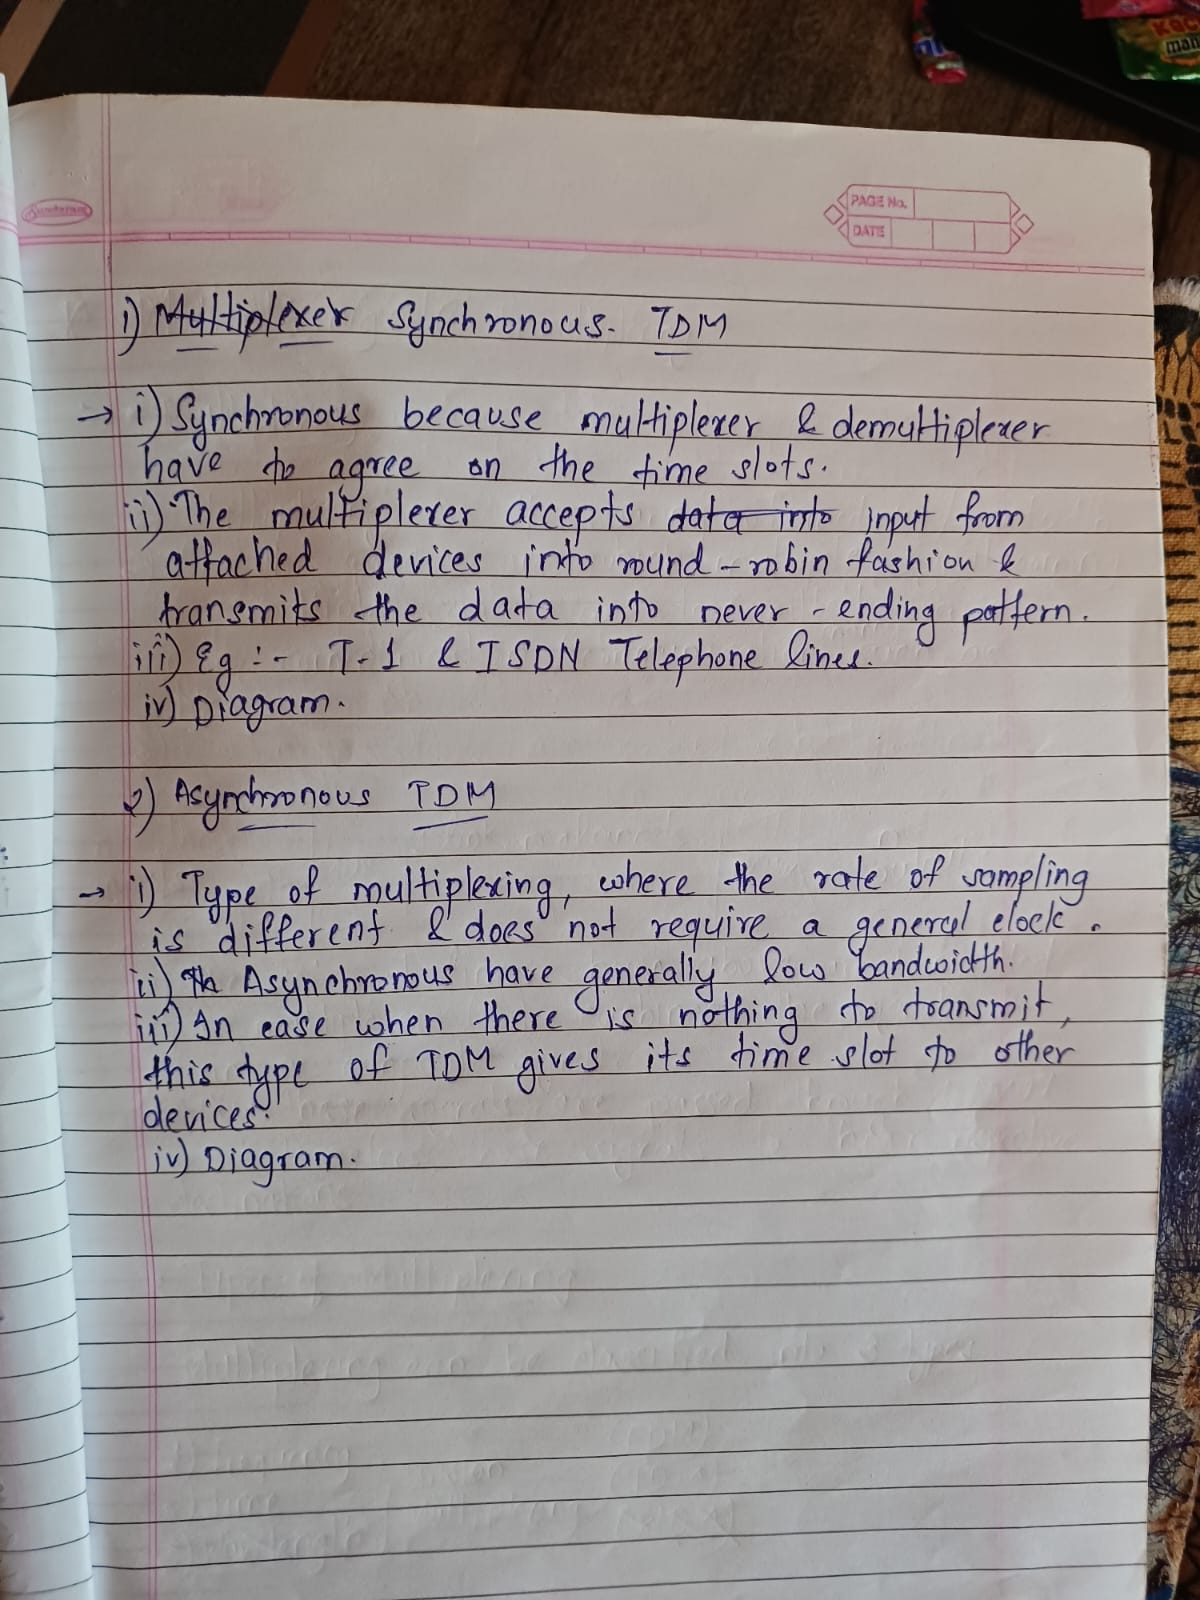 Sundaram
PAGE No.
DATE
1) Multiplexer Synchronous. TDM
→ i) Synchronous because multiplexer & demultiplexer
have to agree on the time slots.
ii) The multiplexer accepts data into input from
attached devices into round-robin fashion &
transmits the data into never-ending pattern.
iii) Eg :- T-1 & ISDN Telephone lines.
iv) Diagram.
2) Asynchronous TDM
→ i) Type of multiplexing, where the rate of sampling
is different & does not require a general clock.
ii) Th Asynchronous have generally low bandwidth.
iii) In case when there is nothing to transmit,
this type of TDM gives its time slot to other
devices.
iv) Diagram.